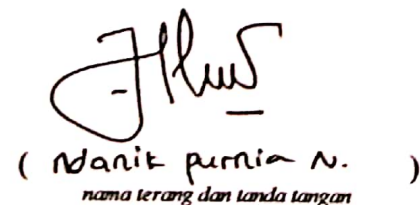 ( Ndanik purnia N. )
nama terang dan tanda tangan